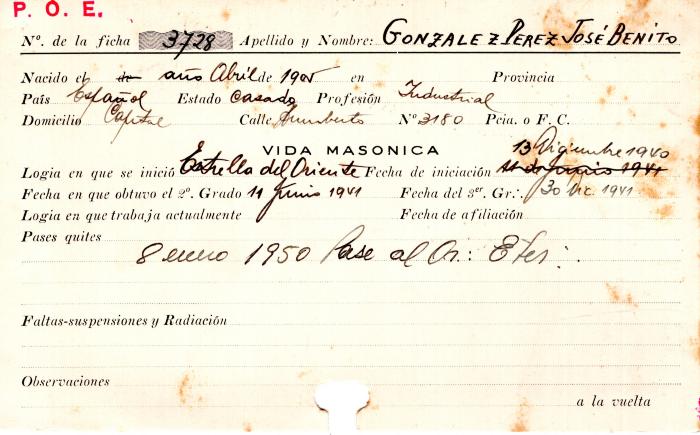 P. O. E.
Nº. de la ficha 3728 Apellido y Nombre: GONZALEZ PEREZ JOSÉ BENITO
Nacido el de año Abril de 1905 en Provincia
País Español Estado casado Profesión Industrial
Domicilio Capital Calle Humberto Nº 3180 Pcia. o F. C.
VIDA MASONICA 13 Diciembre 1940
Logia en que se inició Estrella del Oriente Fecha de iniciación 11 de junio 1941
Fecha en que obtuvo el 2º. Grado 11 Junio 1941 Fecha del 3er. Gr∴ 30 Dic. 1941
Logia en que trabaja actualmente Fecha de afiliación
Pases quites
8 enero 1950 Pase al Or∴ Eter∴
Faltas-suspensiones y Radiación
Observaciones
a la vuelta